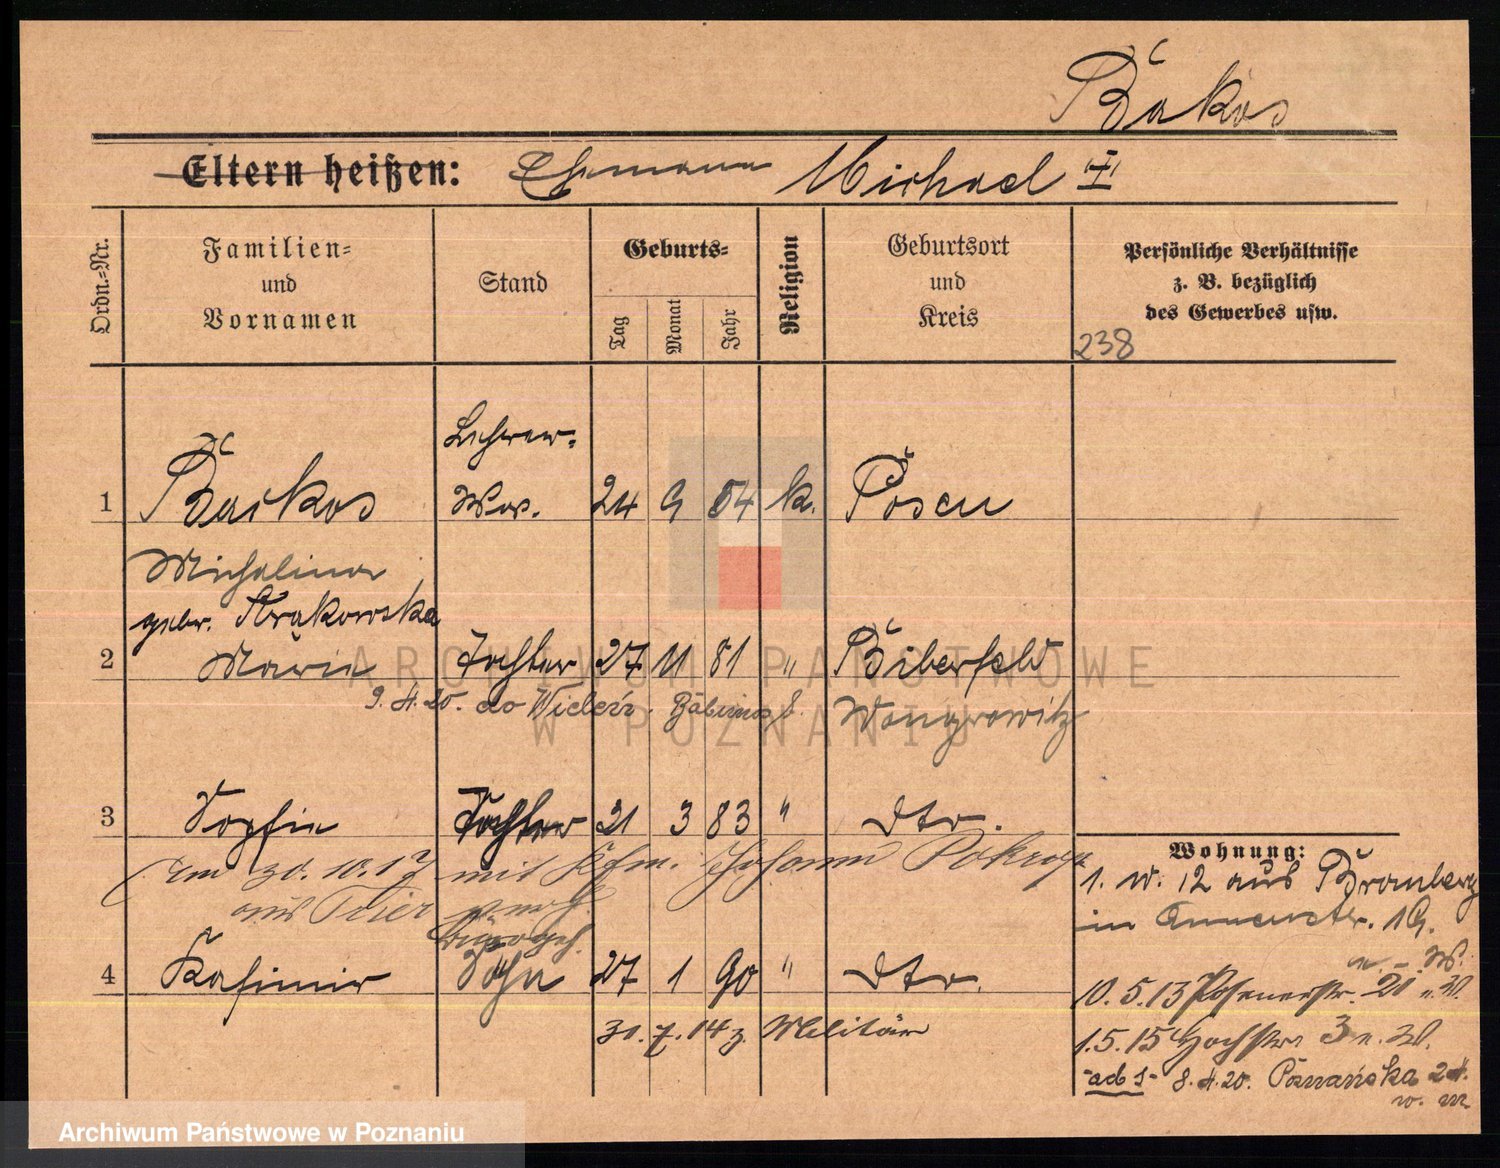 Bąkos
Eltern heißen: Ehemann Michael I
Ordn.-Nr.
Familien- und Vornamen
Stand
Geburts-
Tag
Monat
Jahr
Religion
Geburtsort und Kreis
Persönliche Verhältnisse
z. B. bezüglich
des Gewerbes usw.
238
Lehrer-
1 Bąkos Wwe. 24 9 54 k. Posen
Michalina
gebr. Strakowska
2 Marie Tochter 27 11 81 " Biberfeld
9.4.20. do Wongrowitz
3 Sophie Tochter 21 3 83 " dto.
Am 30.10.17 mit Kfm. Johann
aus Trier
4 Kasimir Sohn 27 1 90 " dto.
31.7.14 z. Militär
Wohnung:
1. IV. 12 aus Bromberg
in 19.
10.5.13 Posenerstr. 21 n. W.
1.5.15 Hochstr. 3 n. W.
-ad 1- 8.4.20. Poznańska 24.
w. m
ARCHIWUM PAŃSTWOWE
W POZNANIU
Archiwum Państwowe w Poznaniu